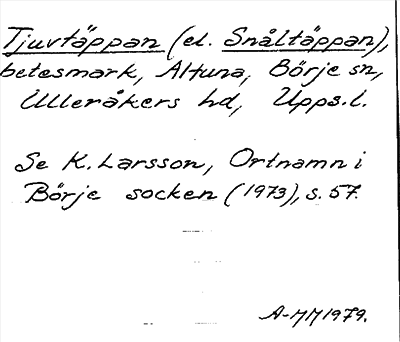 Tjuvtäppan (el. Snåltäppan),
betesmark, Altuna, Börje sn,
Ulleråkers hd, Upps.l.
Se K. Larsson, Ortnamn i
Börje socken (1973), s. 57.
A-MM 1979.